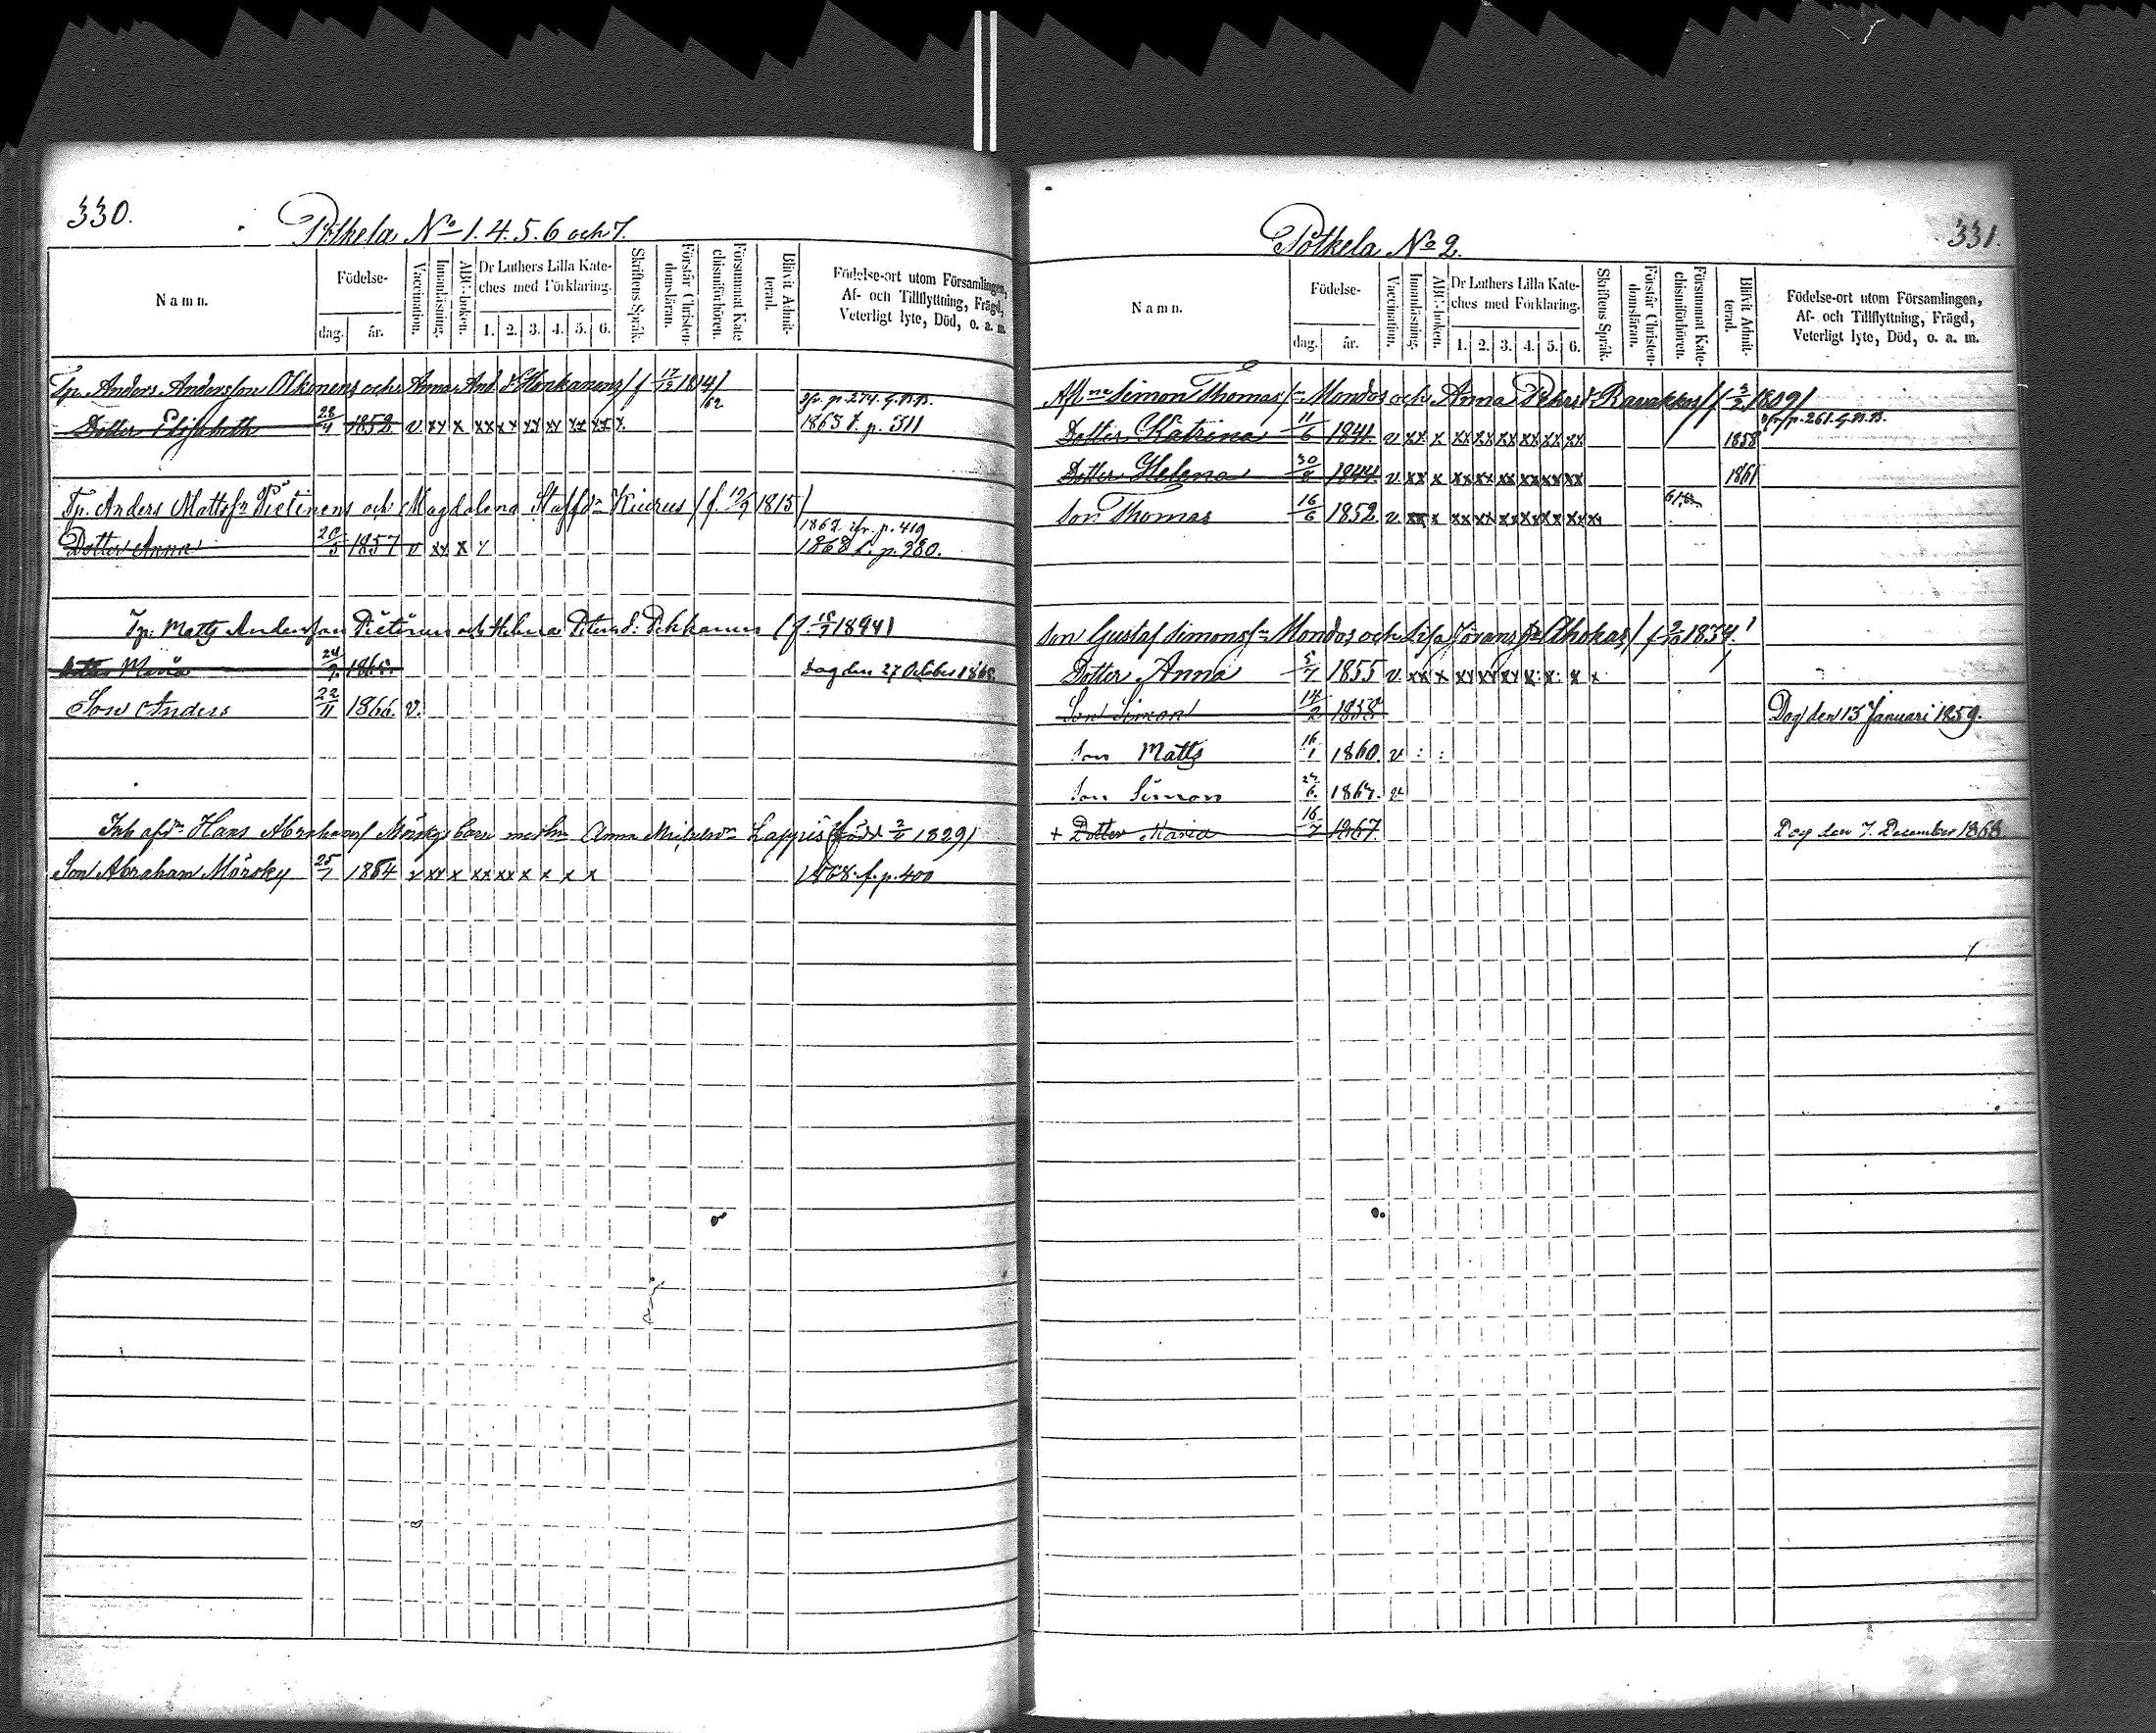 330.
Pölkela No 1. 4. 5. 6 och 7.
Namn.
Födelse-
dag.
år.
Vaccination.
Innanläsning.
ABC-boken.
Dr Luthers Lilla Kate-
ches med Förklaring.
1. 2. 3. 4. 5. 6.
Skriftens Språk.
Förstår Christen-
domsläran.
Försummat Kate
chismiförhören.
Blifvit Admit-
terad.
Födelse-ort utom Församlingen,
Af- och Tillflyttning, Frägd,
Veterligt lyte, Död, o. a. m.
Tp. Anders Andersson Olkonens och Anna And. d. Henkanens (f 17/12 1814)
Dotter Elisabeth 28/4 1852 v xx x xx xx xx xx xx xx x /62 1863 f. p. 511
Tp. Anders Mattsn Pietinens och Magdalena Staffdr Kiurus (f. 12/9 1815)
Dotter Anna 20/5 1857 v xx x 1868 f. p. 380.
Tp. Matts Andersson Pietinen och Helena Peters d. Pekkanen
Dotter Maria 24/9 1865. Dog den 27 October 1868.
Son Anders 22/11 1866. v.
Hans Abrahams Mörsky barn med h. Anna Lappis född 2/2 1829)
Son Abraham Mörsky 25/1 1854 v xx x xx xx x x x x 1868. f. p. 400
331.
Pölkela No 2.
Namn.
Födelse-
dag.
år.
Vaccination.
Innanläsning.
ABC-boken.
Dr Luthers Lilla Kate-
ches med Förklaring.
1. 2. 3. 4. 5. 6.
Skriftens Språk.
Förstår Christen-
domsläran.
Försummat Kate-
chismiförhören.
Blifvit Admit-
terad.
Födelse-ort utom Församlingen,
Af- och Tillflyttning, Frägd,
Veterligt lyte, Död, o. a. m.
Afl. Simon Thomas sn Mondos och Anna Peters d. Ravakkas (f 3/2 1809)
Dotter Katrina 11/6 1841. v xx x xx xx xx xx xx xx 1858
Dotter Helena 30/8 1844. v xx x xx xx xx xx xx xx 1861
Son Thomas 16/6 1852. v xx x xx xx xx xx xx xx
Son Gustaf Simons sn Mondos och Lisa Jörans dr Ahokas (f 2/10 1834.)
Dotter Anna 5/7 1855 v xx x xx xx xx x: x: x x
Son Simon 14/2 1858 Dog den 13 Januari 1859.
Son Matts 16/1 1860. v : :
Son Simon v
+ Dotter Maria 16/7 1867. Dog den 7. December 1868.